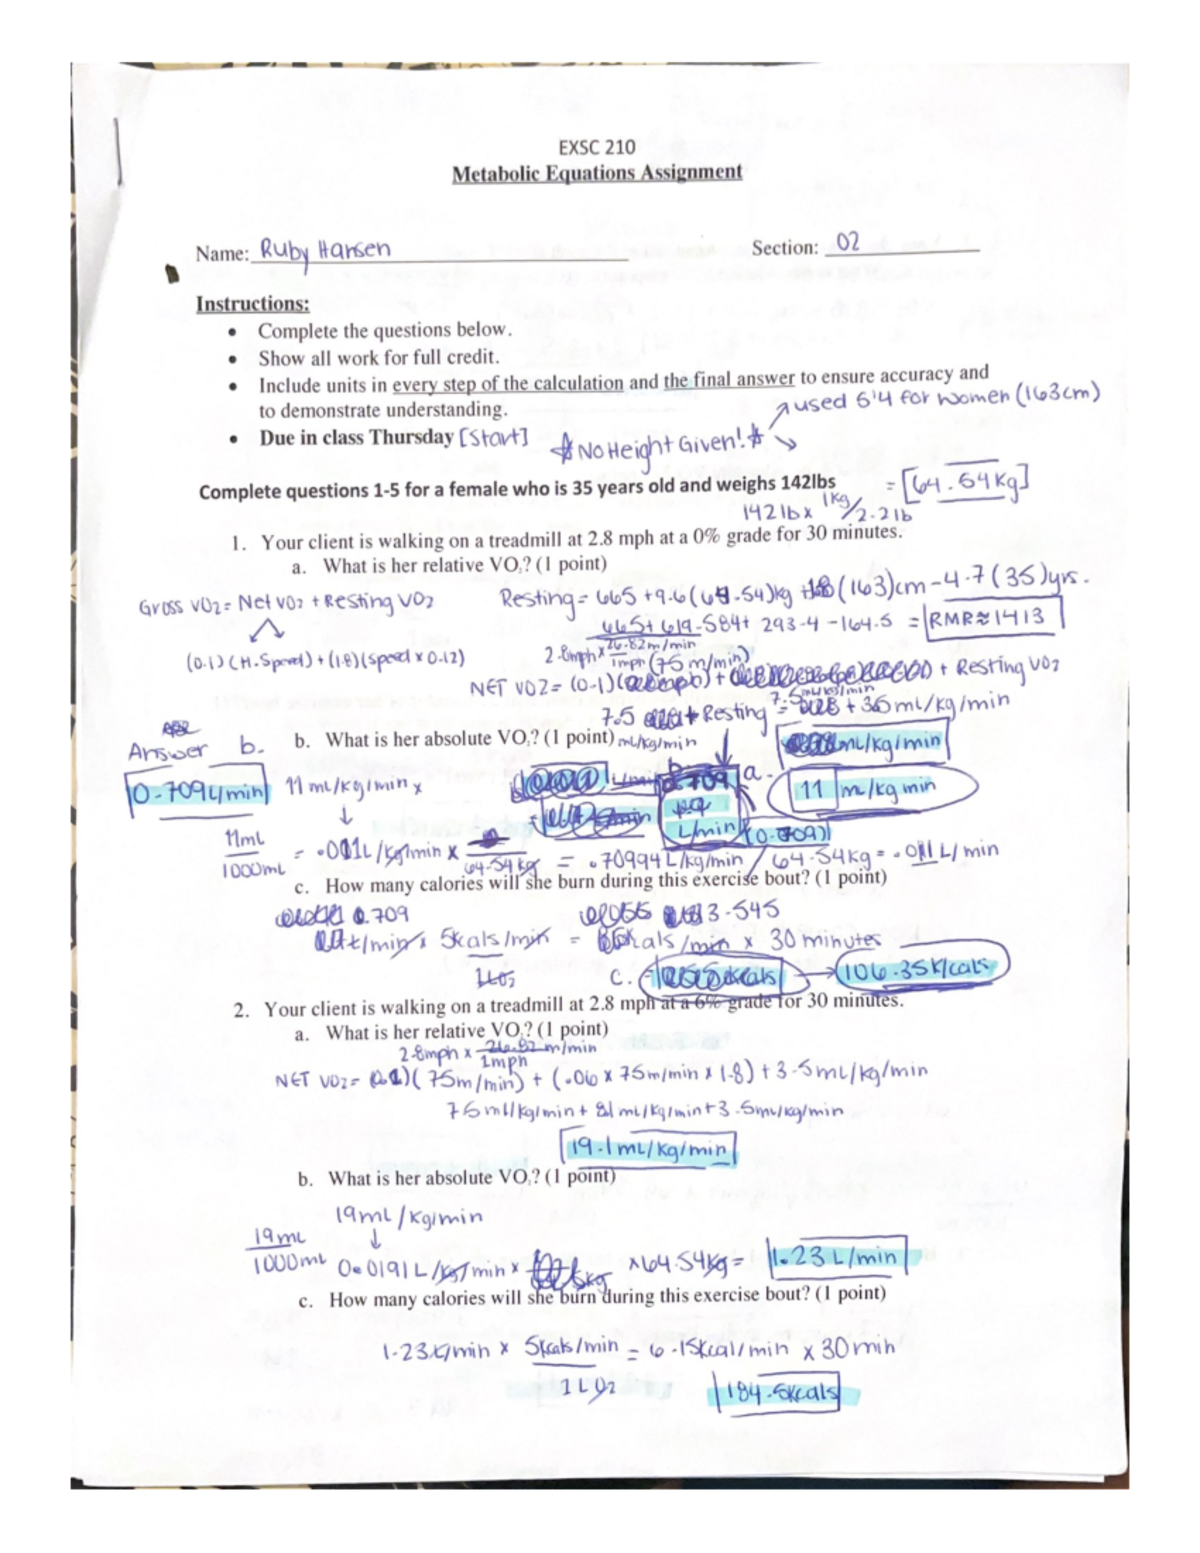 EXSC 210
Metabolic Equations Assignment
Name: Ruby Hansen Section: 02
Instructions:
• Complete the questions below.
• Show all work for full credit.
• Include units in every step of the calculation and the final answer to ensure accuracy and
to demonstrate understanding.
used 5'4 for women (163cm)
• Due in class Thursday [Start]
No Height Given!
Complete questions 1-5 for a female who is 35 years old and weighs 142lbs = [64.54kg]
142 lb x 1kg/2.2lb
1. Your client is walking on a treadmill at 2.8 mph at a 0% grade for 30 minutes.
a. What is her relative VO₂? (1 point)
Gross VO2 = Net VO2 + Resting VO2
Resting = 665 + 9.6(64.54)kg + 1.8(163)cm - 4.7(35)yrs.
665 + 619.584 + 293.4 - 164.5 = RMR≈1413
(0.1)(H.Speed) + (1.8)(speed x 0.12)
2.8mph x 26.82m/min
1mph
NET VO2 = (0.1)(75 m/min) + Resting VO2
7.5 mL/kg/min + Resting = 7.5mL/kg/min + 3.5 mL/kg/min
b. What is her absolute VO₂? (1 point)
mL/kg/min
Answer b.
0.709 L/min
a. 11 mL/kg min
11 mL/kg/min x
0.709
L/min (0.709)
11mL
1000mL
= .011L/kg/min x 64.54kg = .70994 L/kg/min / 64.54kg = .011 L/min
c. How many calories will she burn during this exercise bout? (1 point)
0.709 3.545
L/min x 5kcals/min = kcals/min x 30 minutes
1LO2
c. 106.35 kcals
2. Your client is walking on a treadmill at 2.8 mph at a 6% grade for 30 minutes.
a. What is her relative VO₂? (1 point)
2.8mph x 26.82 m/min
1mph
NET VO2 = (0.1)(75m/min) + (.06 x 75m/min x 1.8) + 3.5mL/kg/min
7.5 mL/kg/min + 8.1 mL/kg/min + 3.5mL/kg/min
19.1 mL/kg/min
b. What is her absolute VO₂? (1 point)
19mL/kg/min
19mL
1000mL
0.0191 L/kg/min x x 64.54kg = 1.23 L/min
c. How many calories will she burn during this exercise bout? (1 point)
1.23L/min x 5kcals/min = 6.15kcal/min x 30min
1 L O2
184.5kcals